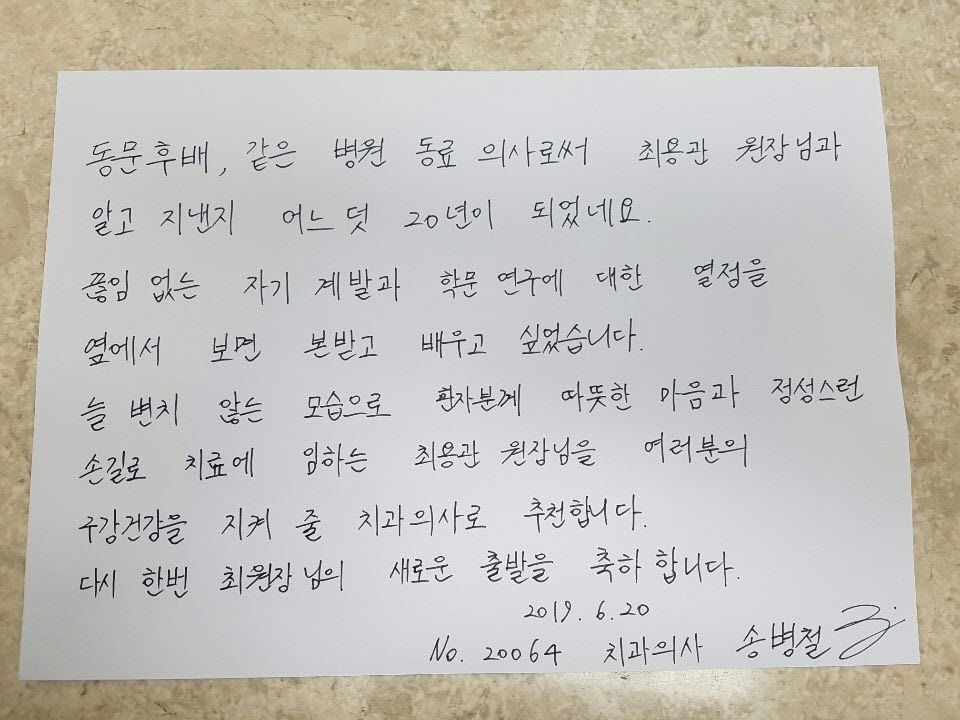 동문후배, 같은 병원 동료 의사로써 최용관 원장님과
알고 지낸지 어느 덧 20년이 되었네요.
끊임 없는 자기 계발과 학문 연구에 대한 열정을
옆에서 보면 본받고 배우고 싶었습니다.
늘 변치 않는 모습으로 환자분께 따뜻한 마음과 정성스런
손길로 치료에 임하는 최용관 원장님을 여러분의
구강건강을 지켜 줄 치과의사로 추천합니다.
다시 한번 최원장님의 새로운 출발을 축하 합니다.
2019. 6. 20
No. 20064 치과의사 송병철